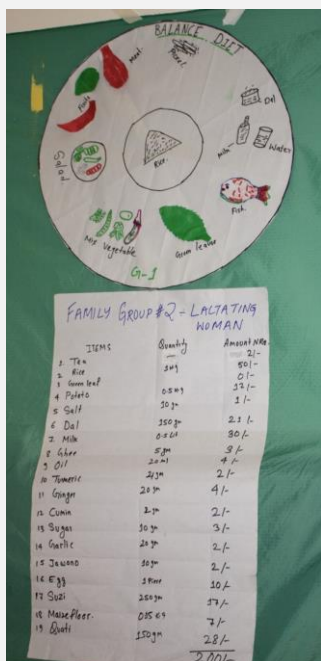 BALANCE DIET
Meat
Fruits
Salad
Rice
Dal
Milk
Water
Fish
Green leaves
Mix Vegetable
G-1
FAMILY GROUP #2 - LACTATING
WOMAN
ITEMS Quantity Amount NRs.
1. Tea 2/-
2 Rice 1 kg 50/-
3 Green leaf 0/-
4 Potato 0.5 kg 12/-
5 Salt 10 gm 1/-
6 Dal 150 gm 21/-
7 Milk 0.5 30/-
8 Ghee 5 gm 3/-
9 Oil 20 ml 4/-
10 Tumeric 2/-
11 Ginger 20 gm 4/-
12 Cumin 2 gm 2/-
13 Sugar 10 gm 3/-
14 Garlic 20 gm 2/-
15 Jawano 10 gm 2/-
16 Egg 10/-
17 Suzi 250 gm 17/-
18 Maize floor 7/-
19 Quati 150 gm 28/-
200/-